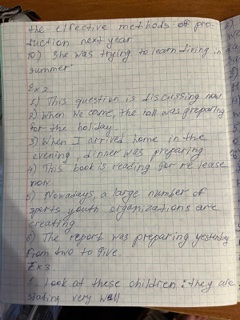 the effective methods of pro-
duction next year.
10) She was trying to learn dining in
summer.
Ex 2.
1) This question is discussing now
2) When we come, the roll was preparing
for the holiday.
3) When I arrived home in the
evening, dinner was preparing
4) This book is reading for release
now
5) Nowadays, a large number of
sports youth organizations are
creating
6) The report was preparing yesterday
from two to five.
Ex 3
1. Look at these children: they are
skating very well